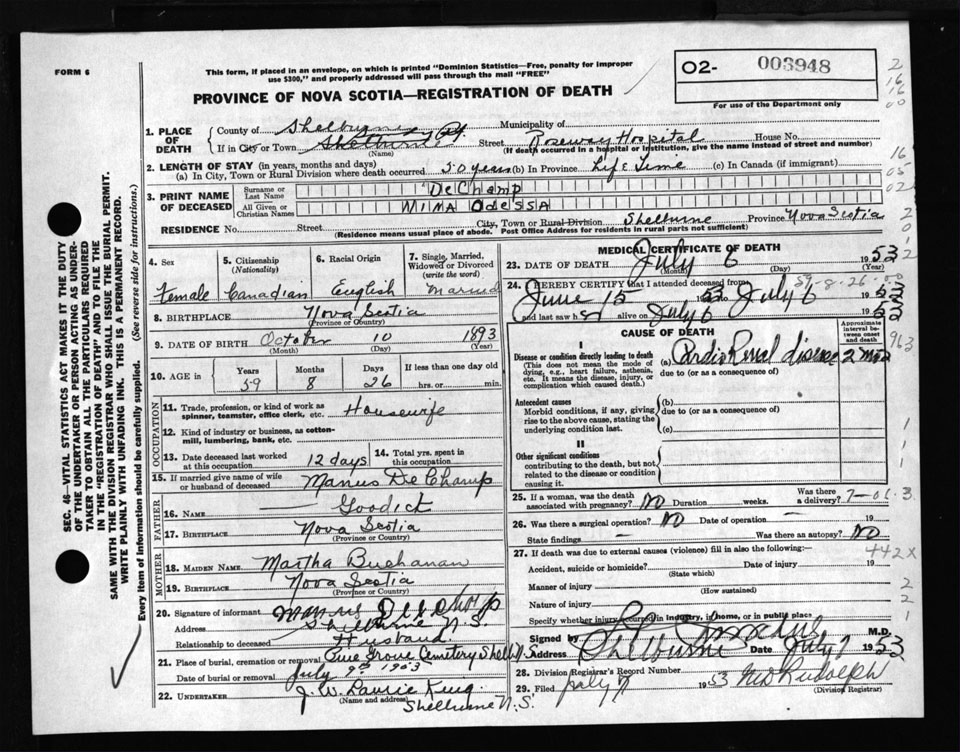 FORM 6
This form, if placed in an envelope, on which is printed "Dominion Statistics—Free, penalty for improper
use $300," and properly addressed will pass through the mail "FREE"
PROVINCE OF NOVA SCOTIA—REGISTRATION OF DEATH
02- 003948
For use of the Department only
1. PLACE OF DEATH
County of Shelburne Municipality of
If in City or Town Shelburne Street Roseway Hospital House No.
(Name) (If death occurred in a hospital or institution, give the name instead of street and number)
2. LENGTH OF STAY (in years, months and days)
(a) In City, Town or Rural Division where death occurred 50 years (b) In Province Life Time (c) In Canada (if immigrant)
3. PRINT NAME OF DECEASED
Surname or Last Name DeChamp
All Given or Christian Names MINA ODESSA
RESIDENCE No. Street City, Town or Rural Division Shelburne Province Nova Scotia
(Residence means usual place of abode. Post Offices in rural parts not sufficient)
4. Sex
Female
5. Citizenship
(Nationality)
Canadian
6. Racial Origin
English
7. Single, Married, Widowed or Divorced
(write the word)
Married
8. BIRTHPLACE Nova Scotia
(Province or Country)
9. DATE OF BIRTH October 10 1893
(Month) (Day) (Year)
10. AGE in
Years Months Days If less than one day old
59 8 26 hrs. or min.
OCCUPATION
11. Trade, profession, or kind of work as spinner, teamster, office clerk, etc. Housewife
12. Kind of industry or business, as cotton-mill, lumbering, bank, etc.
13. Date deceased last worked at this occupation 12 days
14. Total yrs. spent in this occupation
15. If married give name of wife or husband of deceased Manus DeChamp
FATHER
16. NAME Goodick
17. BIRTHPLACE Nova Scotia
(Province or Country)
MOTHER
18. MAIDEN NAME Martha Buchanan
19. BIRTHPLACE Nova Scotia
(Province or Country)
20. Signature of informant Manus DeChamp
Address Shelburne N.S.
Relationship to deceased Husband
21. Place of burial, cremation or removal Pine Grove Cemetery Shelb. N.S.
Date of burial or removal July 9th 1953
22. UNDERTAKER J. W. Laurie King
(Name and address)
Shelburne N.S.
MEDICAL CERTIFICATE OF DEATH
23. DATE OF DEATH July 6 1953
(Month) (Day) (Year)
59-8-26-
24. I HEREBY CERTIFY that I attended deceased from
June 15 1953 to July 6 1953
and last saw h alive on July 6 1953
CAUSE OF DEATH
Approximate interval between onset and death
I
Disease or condition directly leading to death
(This does not mean the mode of dying, e.g., heart failure, asthenia, etc. It means the disease, injury, or complication which caused death.)
(a) Cardio Renal disease 2 mos
due to (or as a consequence of)
Antecedent causes
Morbid conditions, if any, giving rise to the above cause, stating the underlying condition last.
(b)
due to (or as a consequence of)
(c)
II
Other significant conditions
contributing to the death, but not related to the disease or condition causing it.
25. If a woman, was the death associated with pregnancy? NO Duration weeks. Was there a delivery?
26. Was there a surgical operation? NO Date of operation — 19
State findings — Was there an autopsy? NO
27. If death was due to external causes (violence) fill in also the following:—
442X
Accident, suicide or homicide? Date of injury 19
(State which)
Manner of injury
(How sustained)
Nature of injury
Specify whether injury occurred in industry, in home, or in public place
Signed by M.D.
Address Shelburne Date July 7 1953
28. Division Registrar's Record Number
29. Filed July 7 1953 Rudolph
(Division Registrar)
SEC. 46—VITAL STATISTICS ACT MAKES IT THE DUTY
OF THE UNDERTAKER OR PERSON ACTING AS UNDER-
TAKER TO OBTAIN ALL THE PARTICULARS REQUIRED
IN THE "REGISTRATION OF DEATH" AND TO FILE THE
SAME WITH THE DIVISION REGISTRAR WHO SHALL ISSUE THE BURIAL PERMIT.
WRITE PLAINLY WITH UNFADING INK. THIS IS A PERMANENT RECORD.
Every item of Information should be carefully supplied. (See reverse side for instructions.)